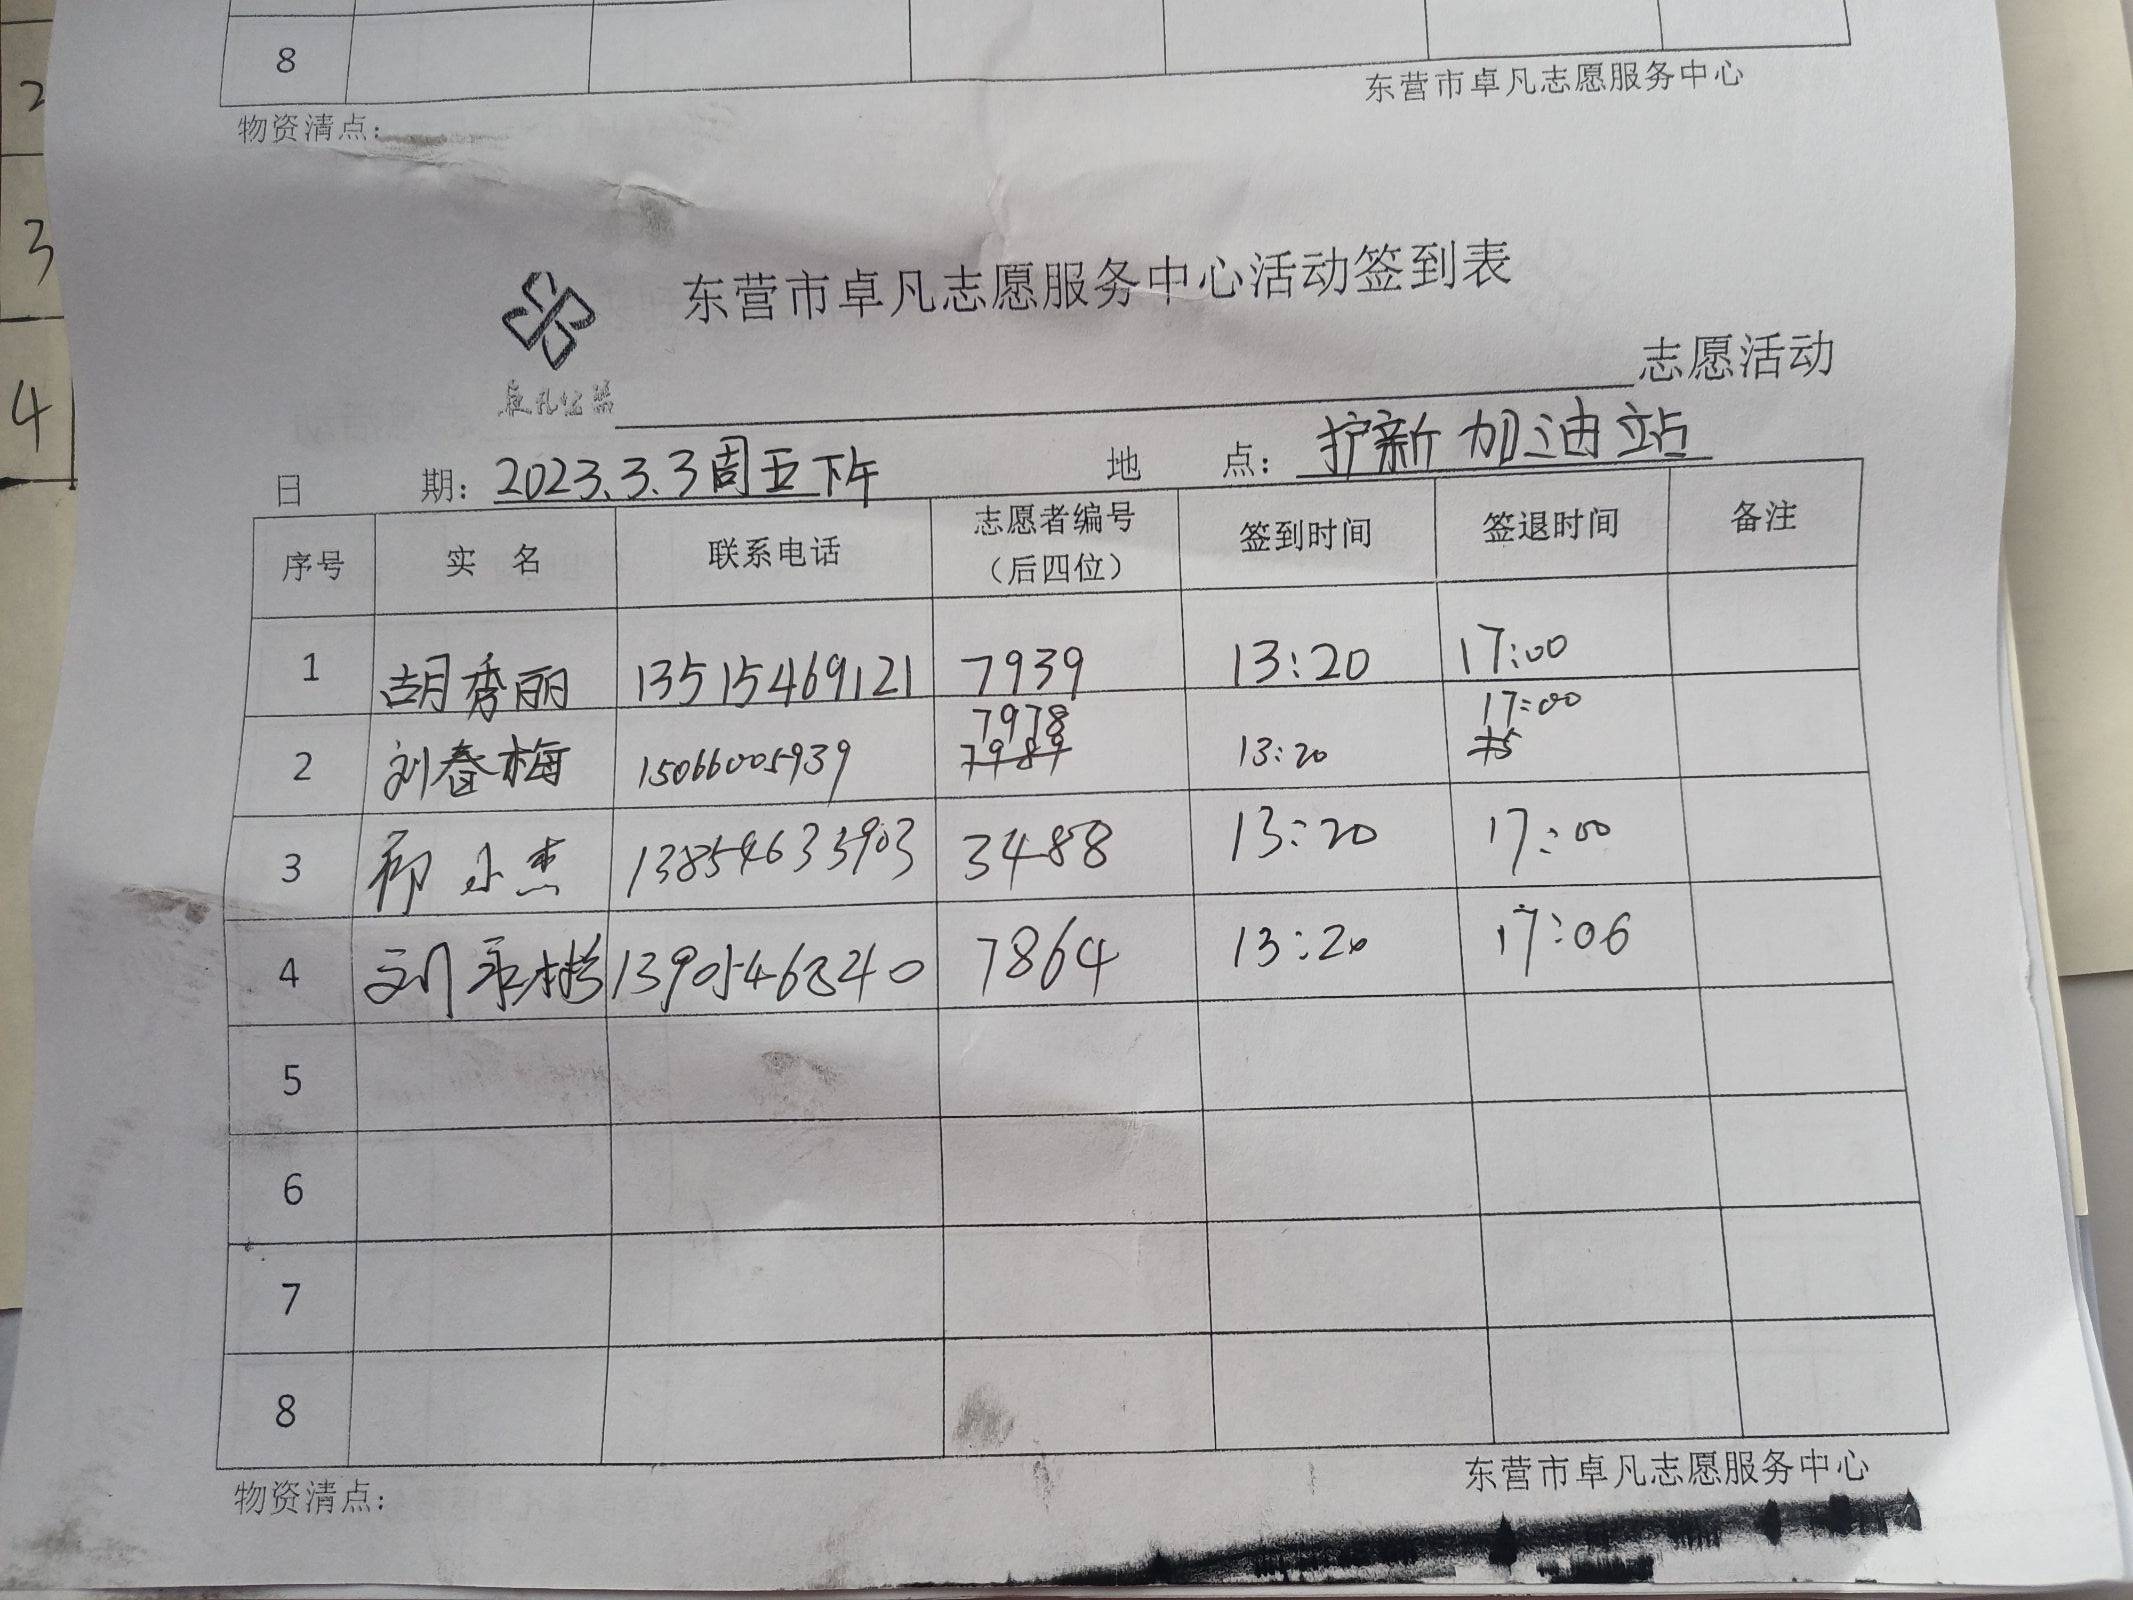 2
3
4
8
东营市卓凡志愿服务中心
物资清点：
东营市卓凡志愿服务中心活动签到表
志愿活动
日 期：2023.3.3周五下午 地 点：护新加油站
序号 实 名 联系电话 志愿者编号（后四位） 签到时间 签退时间 备注
1 胡秀丽 13515469121 7939 13:20 17:00
2 刘春梅 15066005939 7978 7989 13:20 17:00
3 13854633903 3488 13:20 17:00
4 刘 7864 13:20 17:06
5
6
7
8
东营市卓凡志愿服务中心
物资清点：